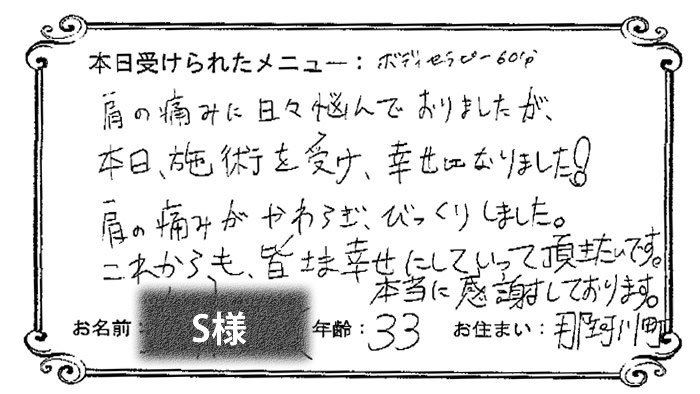 本日受けられたメニュー：ボディセラピー60分
肩の痛みに日々悩んでおりましたが、
本日、施術を受け、幸せになりました!
肩の痛みがやわらぎ、びっくりしました。
これからも、皆さま幸せにしていって頂きたいです。
本当に感謝しております。
お名前： S様 年齢：33 お住まい：那珂川町